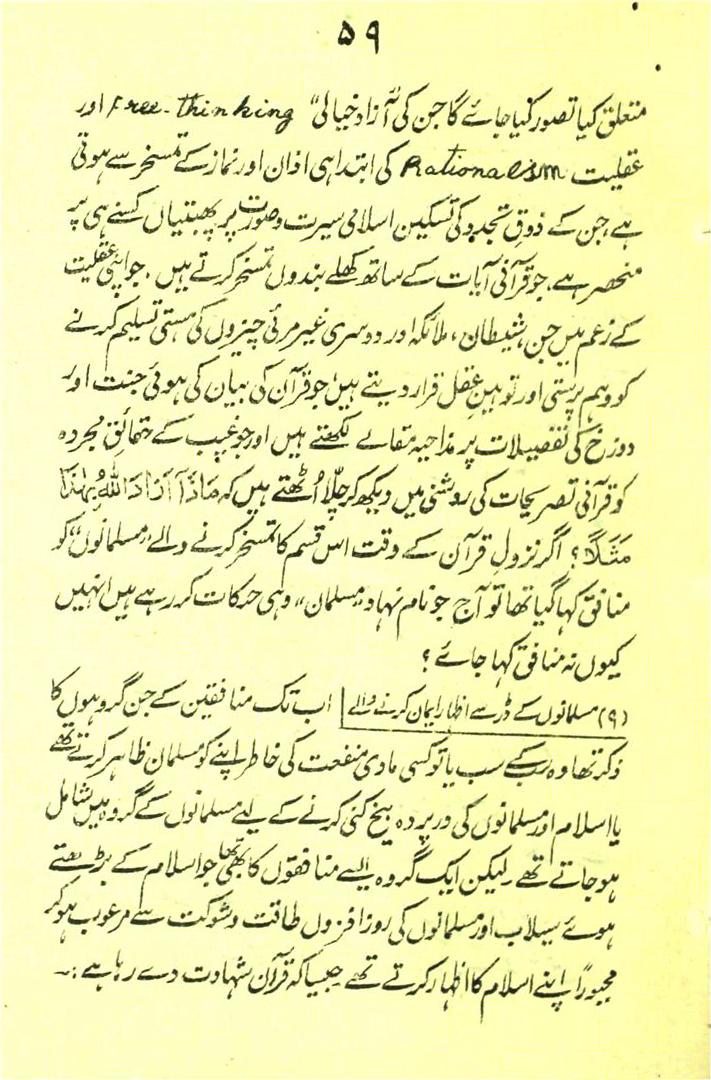 ۵۹
متعلق کیا تصور کیا جائے گا جن کی "آزاد خیالی" Free-thinking اور
عقلیت Rationalism کی ابتدا ہی اذان اور نماز کے تمسخر سے ہوتی
ہے، جن کے ذوقِ تجدد کی تسکین اسلامی سیرت و صورت پر پھبتیاں کسنے ہی پر
منحصر ہے، جو قرآنی آیات کے ساتھ کھلے بندوں تمسخر کرتے ہیں، جو اپنی عقلیت
کے زعم میں جن، شیطان، ملائکہ اور دوسری غیر مرئی چیزوں کی ہستی تسلیم کرنے
کو وہم پرستی اور توہینِ عقل قرار دیتے ہیں، جو قرآن کی بیان کی ہوئی جنت اور
دوزخ کی تفصیلات پر مذاحیہ مقالے لکھتے ہیں اور جو غیب کے حقائق مجردہ
کو قرآنی تصریحات کی روشنی میں دیکھ کر چلّا اُٹھتے ہیں کہ مَاذَآ اَرَادَ اللّٰهُ بِهٰذَا
مَثَلًا؟ اگر نزولِ قرآن کے وقت اس قسم کا تمسخر کرنے والے "مسلمانوں" کو
منافق کہا گیا تھا تو آج جو نام نہاد "مسلمان" وہی حرکات کر رہے ہیں انہیں
کیوں نہ منافق کہا جائے؟
(۹) مسلمانوں کے ڈر سے اظہار ایمان کرنے والے اب تک منافقین کے جن گروہوں کا
ذکر تھا وہ سب کے سب یا تو کسی مادی منفعت کی خاطر اپنے کو مسلمان ظاہر کرتے تھے
یا اسلام اور مسلمانوں کی درپردہ بیخ کنی کرنے کے لیے مسلمانوں کے گروہ میں شامل
ہو جاتے تھے۔ لیکن ایک گروہ ایسے منافقوں کا بھی تھا جو اسلام کے بڑھتے
ہوئے سیلاب اور مسلمانوں کی روز افزوں طاقت و شوکت سے مرعوب ہو کر
مجبوراً اپنے اسلام کا اظہار کرتے تھے جیسا کہ قرآن شہادت دے رہا ہے:۔